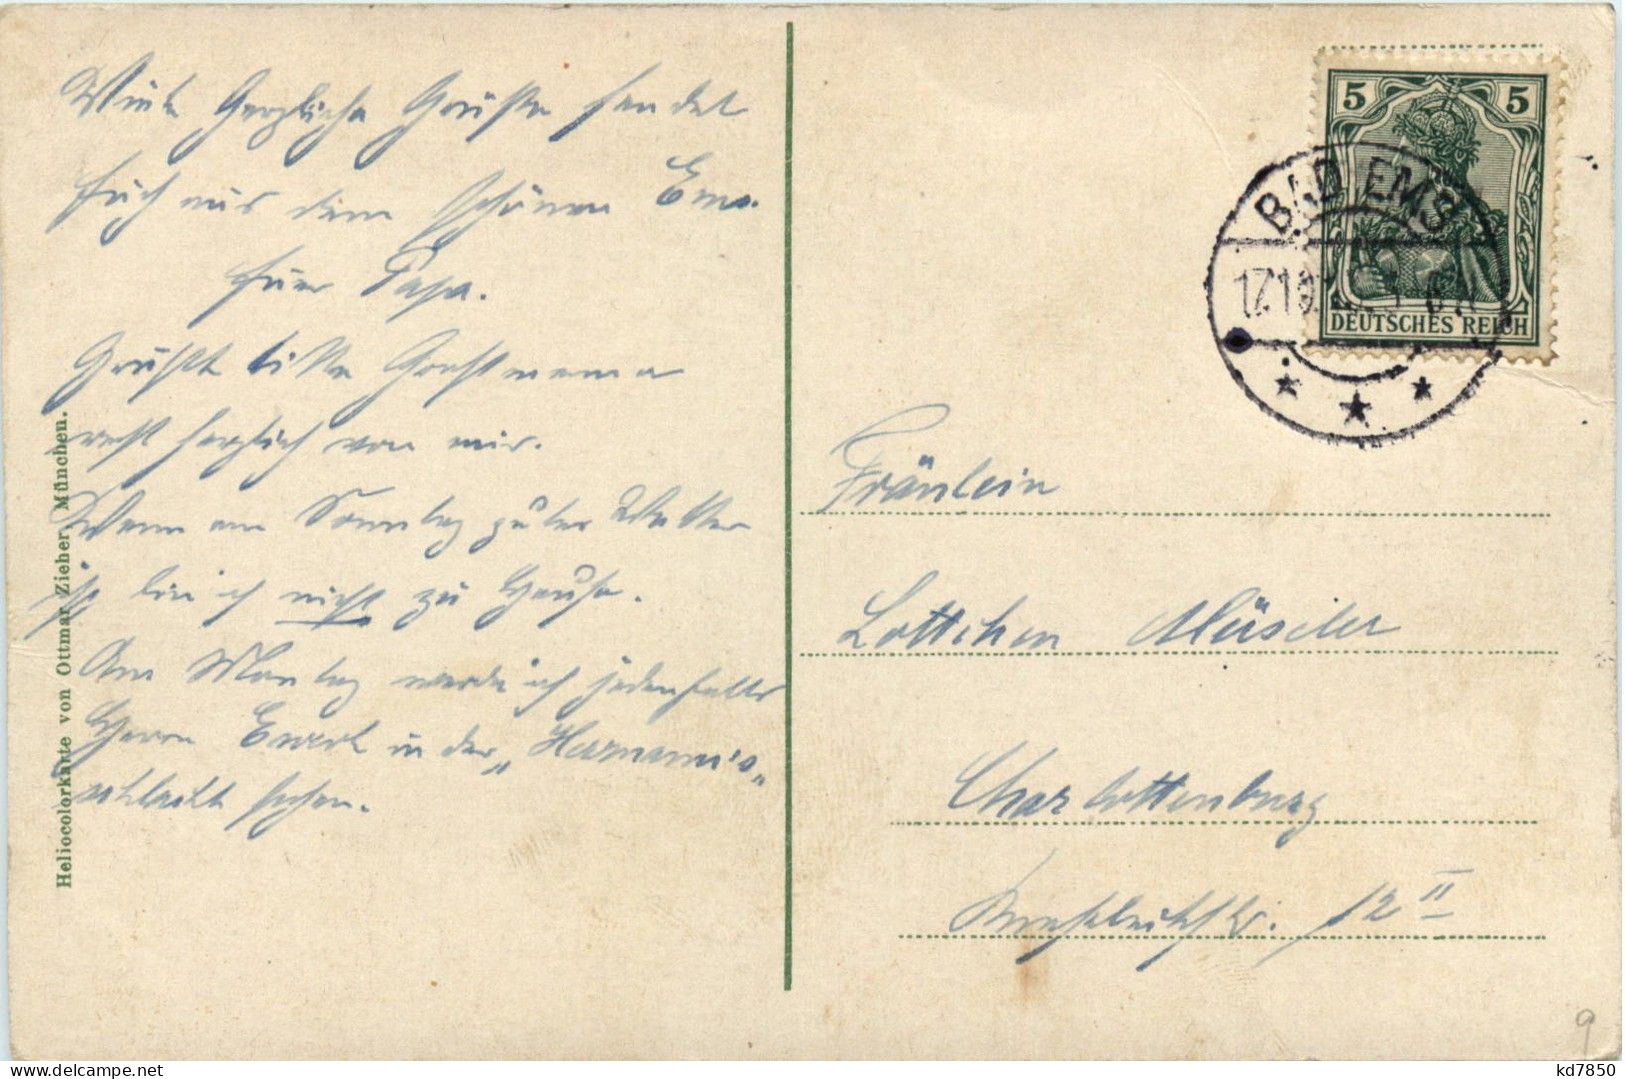 Viele herzliche Grüsse sendet
Euch aus dem schönen Ems.
Euer Papa.
Grüsst bitte Grossmama
recht herzlich von mir.
Wenn am Sonntag gutes Wetter
ist bin ich nicht zu Hause.
Am Montag werde ich jedenfalls
Herrn in der „Hermann's"
schlacht sehen.
Heliocolorkarte von Ottmar Zieher, München.
5 5
DEUTSCHES REICH
BAD EMS
Fräulein
Lottchen
Charlottenburg
12 II
9
kd7850